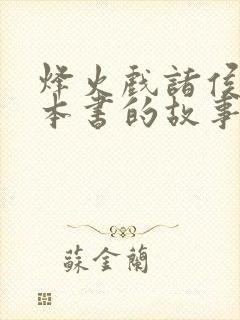 烽火戏諸侯
本書的故事
蘇金蘭